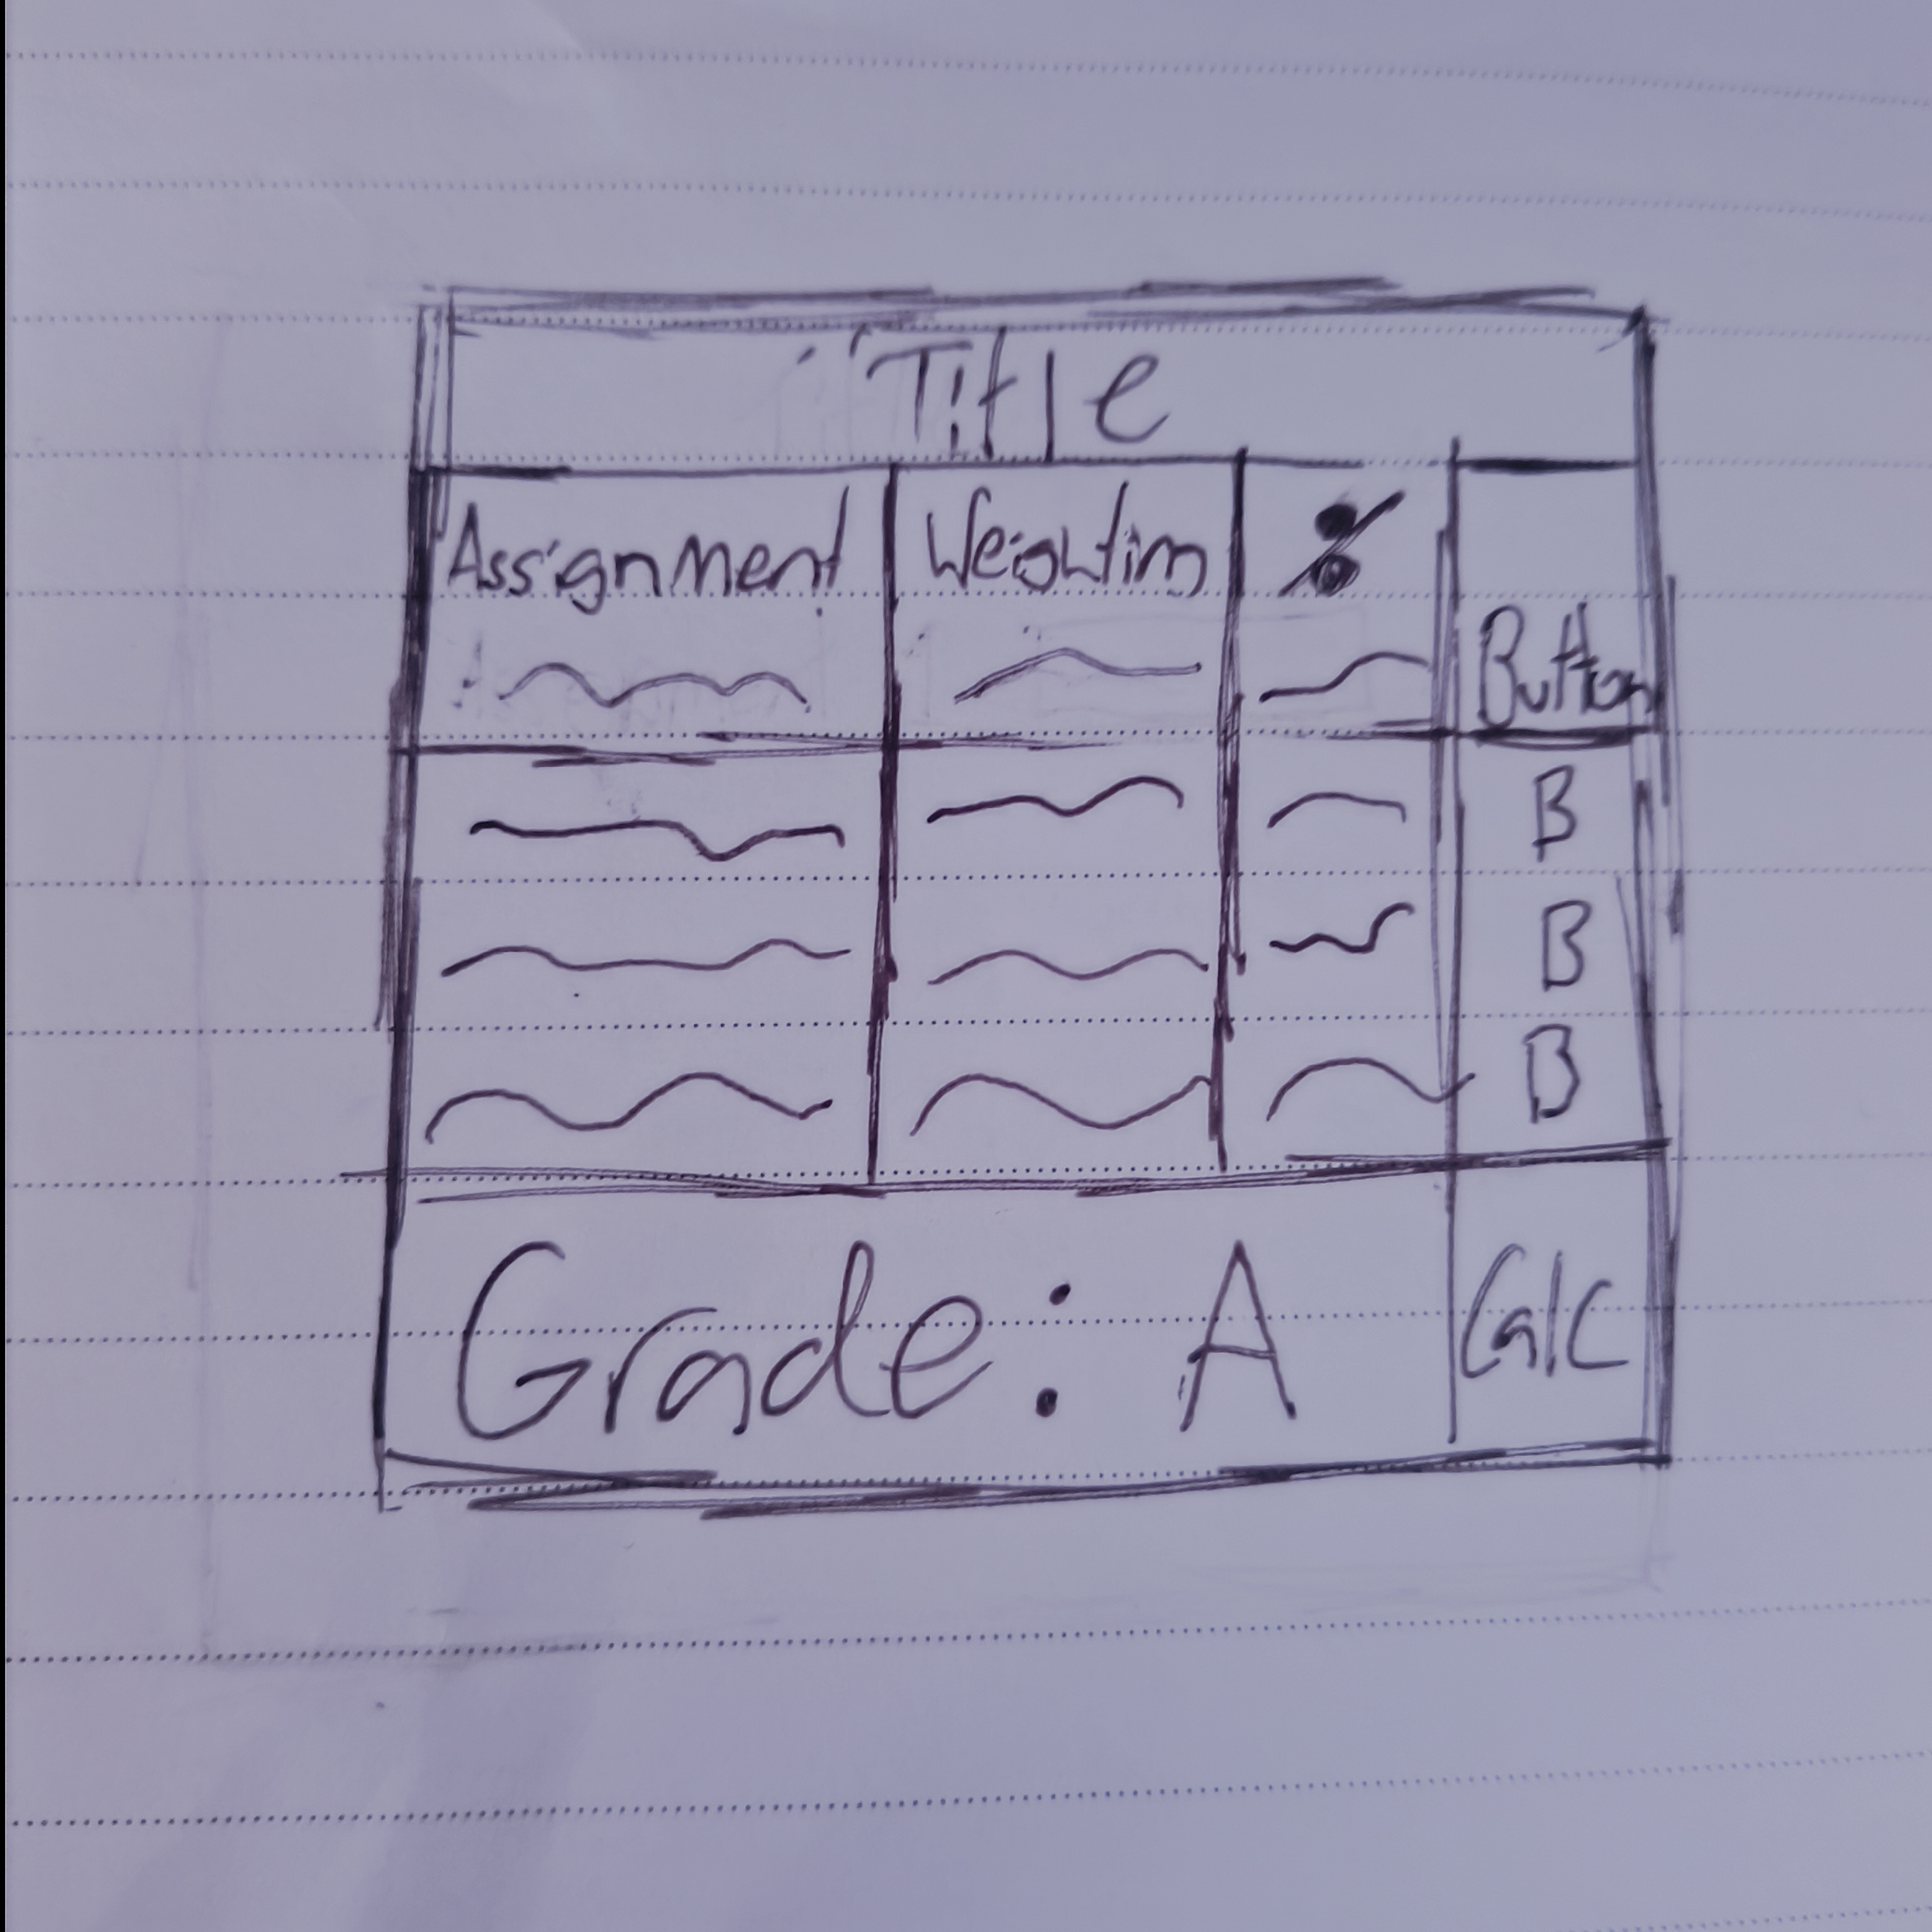 Title
Assignment Weightim %
Button
B
B
B
Grade: A Calc